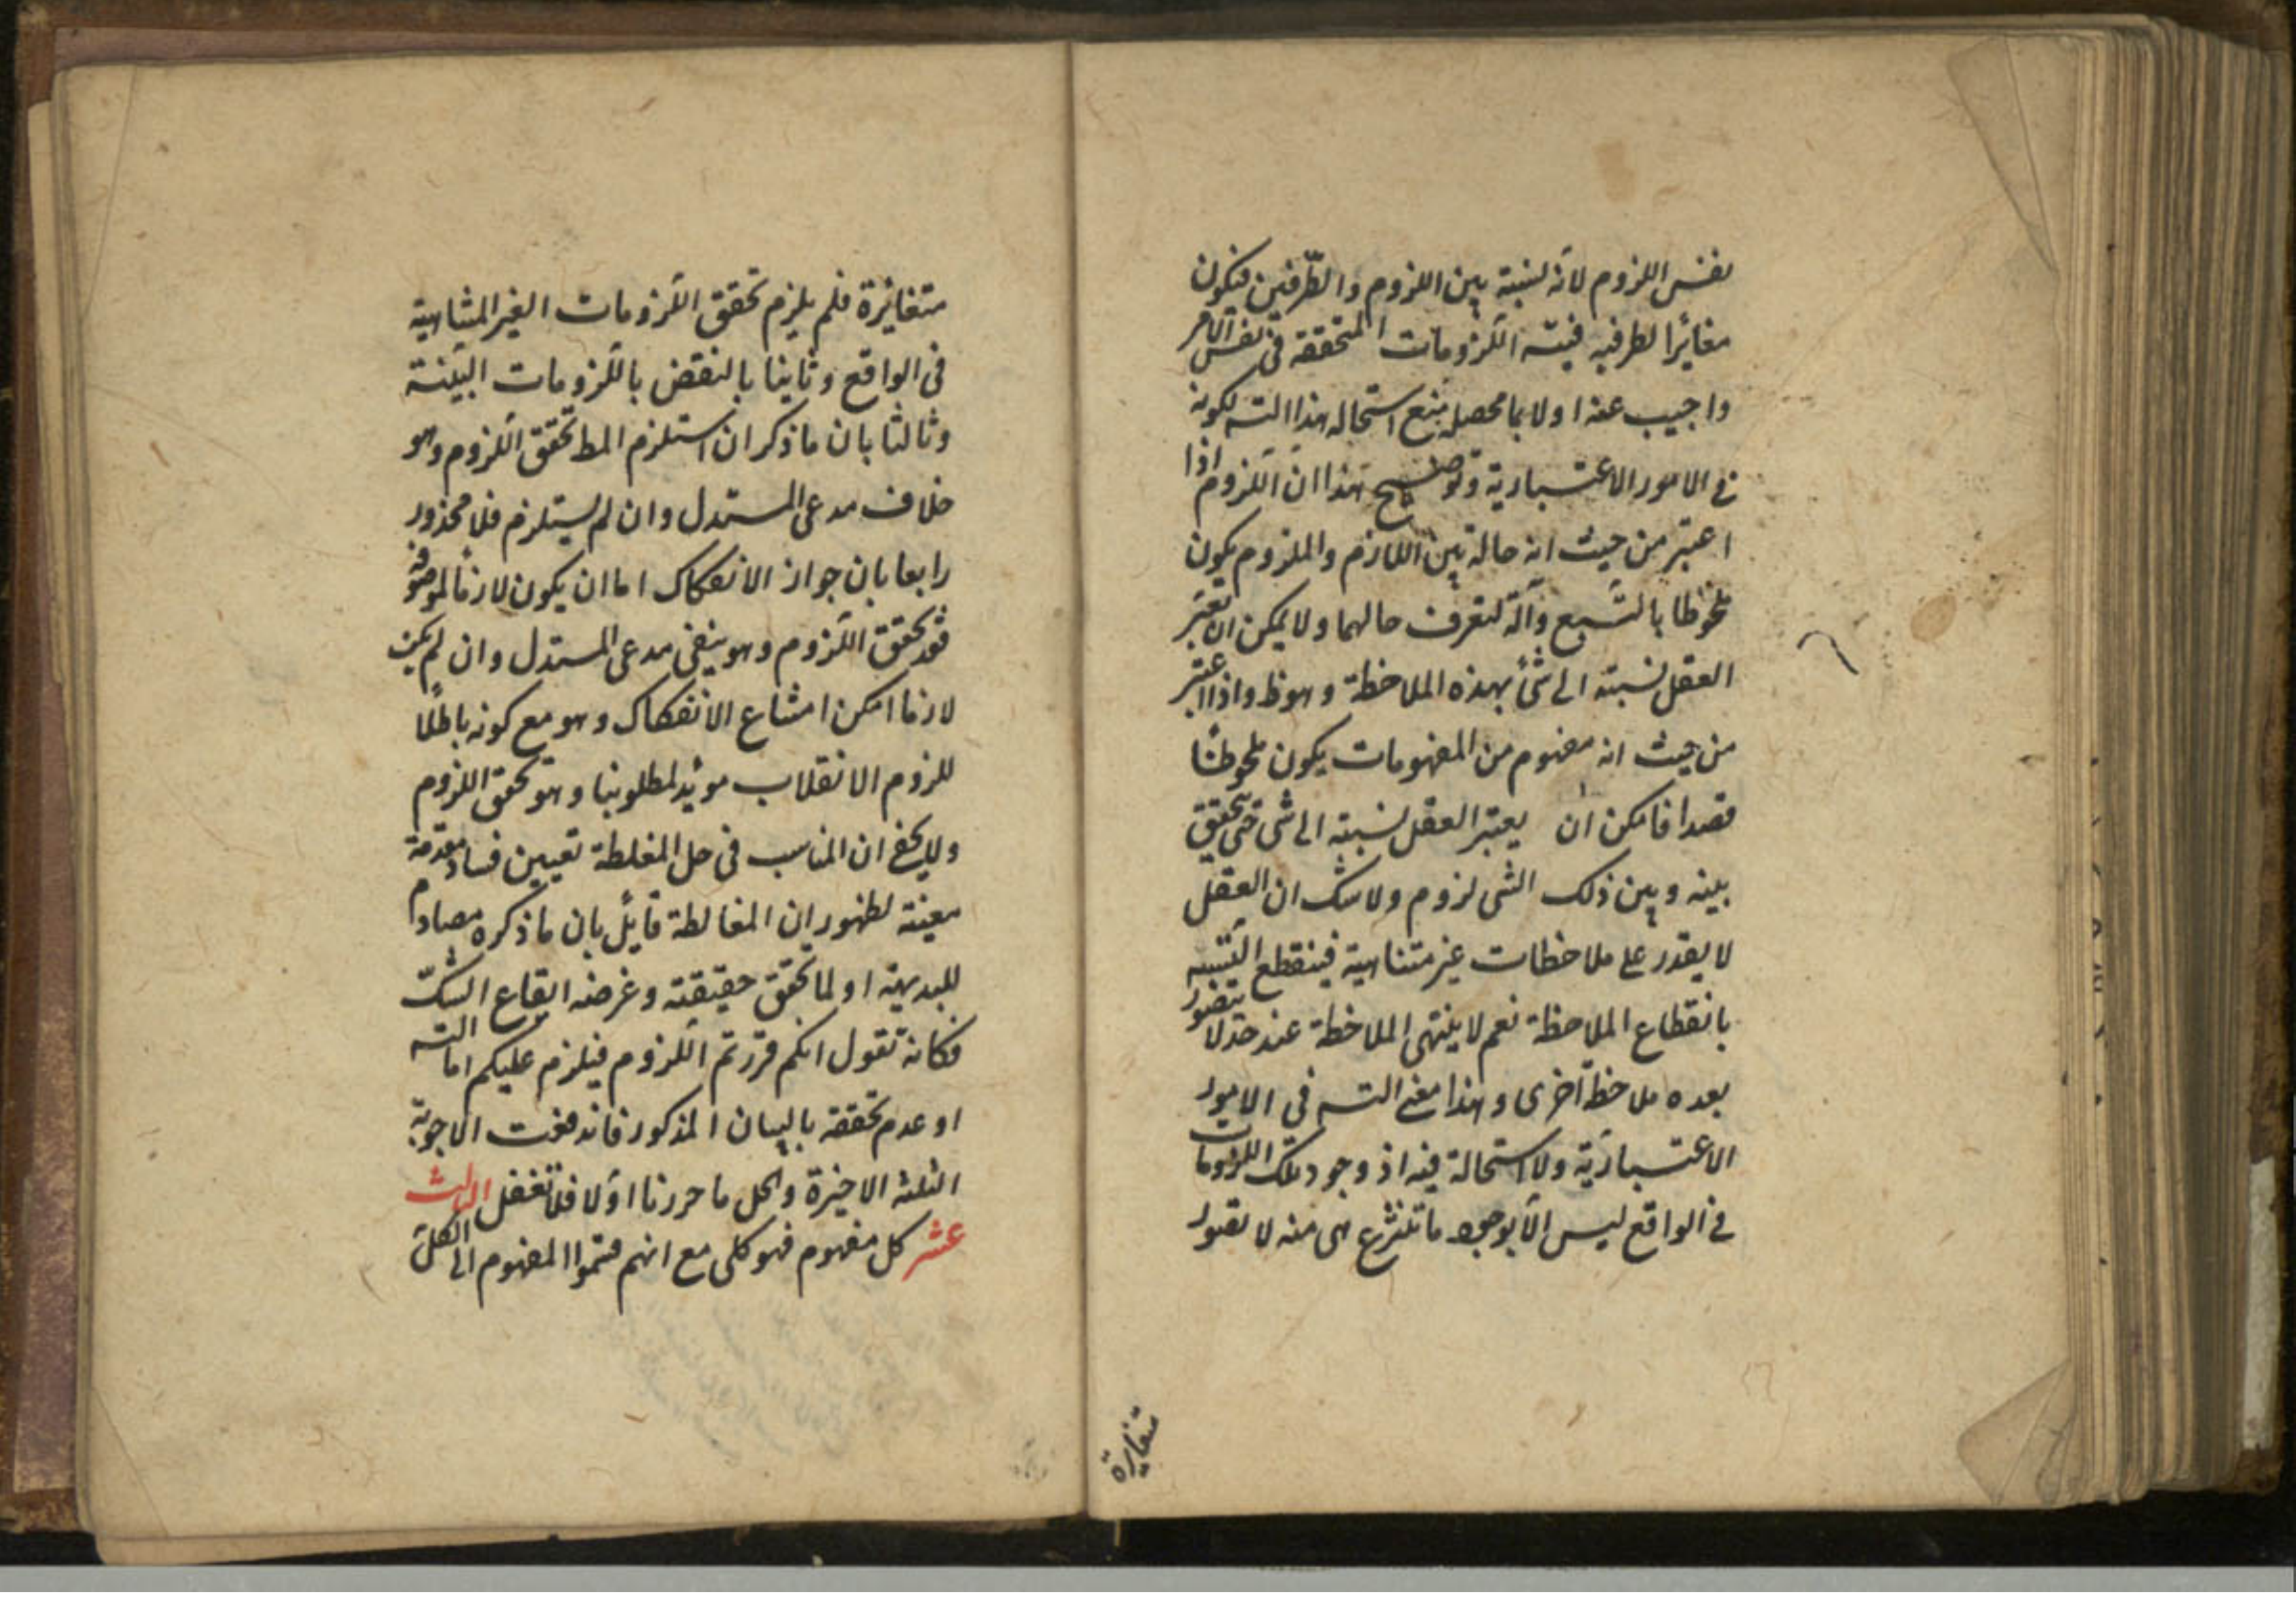 نفس اللزوم لانه نسبة بين اللزوم والطّرفين فيكون
مغائرا لطرفيه فيتسه اللزومات المتحققة فى نفس الامر
واجيب عنه اولا بما محصله منع استحاله هذا التسه لكونه
فى الامور الاعتبارية وتوضيح هذا ان اللزوم اذا
اعتبر من حيث انه حالة بين اللازم والملزوم يكون
ملحوظا بالتبع وآلة لتعرف حالهما ولا يمكن ان يعتبر
العقل نسبته الى شئ بهذه الملاحظة وهو ظ واذا اعتبر
من حيث انه مفهوم من المفهومات يكون ملحوظا
قصدا فامكن ان يعتبر العقل نسبته الى شى حتى يتحقق
بينه وبين ذلك الشى لزوم ولا شك ان العقل
لا يقدر على ملاحظات غير متناهية فينقطع التسه
بانقطاع الملاحظة نعم لا ينتهى الملاحظة عند حد لا يتصور
بعده ملاحظة اخرى وهذا معنى التسه فى الامور
الاعتبارية ولا استحالة فيه اذ وجود تلك اللزومات
فى الواقع ليس الا بوجود ما تنتزع هى منه لا بصور
متغايرة
متغائرة فلم يلزم تحقق اللزومات الغير المتناهية
فى الواقع وثانيا بالنقض باللزومات البيّنة
وثالثا بان ما ذكر ان استلزم المط تحقق اللزوم وهو
خلاف مدعى المستدل وان لم يستلزم فلا محذور
رابعا بان جواز الانفكاك اما ان يكون لازما لموصوفه
فقد تحقق اللزوم وهو ينفى مدعى المستدل وان لم يكن
لازما امكن امتناع الانفكاك وهو مع كونه باطلا
للزوم الانقلاب مؤيد لمطلوبنا وهو تحقق اللزوم
ولا يخفى ان المناسب فى حل المغلطة تعيين فساد مقدمة
معينة لظهور ان المغالطة قايل بان ما ذكره مصادم
للبديهة او لما تحقق حقيقته وغرضه ايقاع الشك
فكانه تقول انكم قررتم اللزوم فيلزم عليكم اما التسه
او عدم تحققه بالبيان المذكور فاندفعت الاجوبة
الثلثه الاخيرة والحل ما حررنا اولا فلا تغفل الثالث
عشر كل مفهوم فهو كلى مع انهم قسموا المفهوم الى الكلى